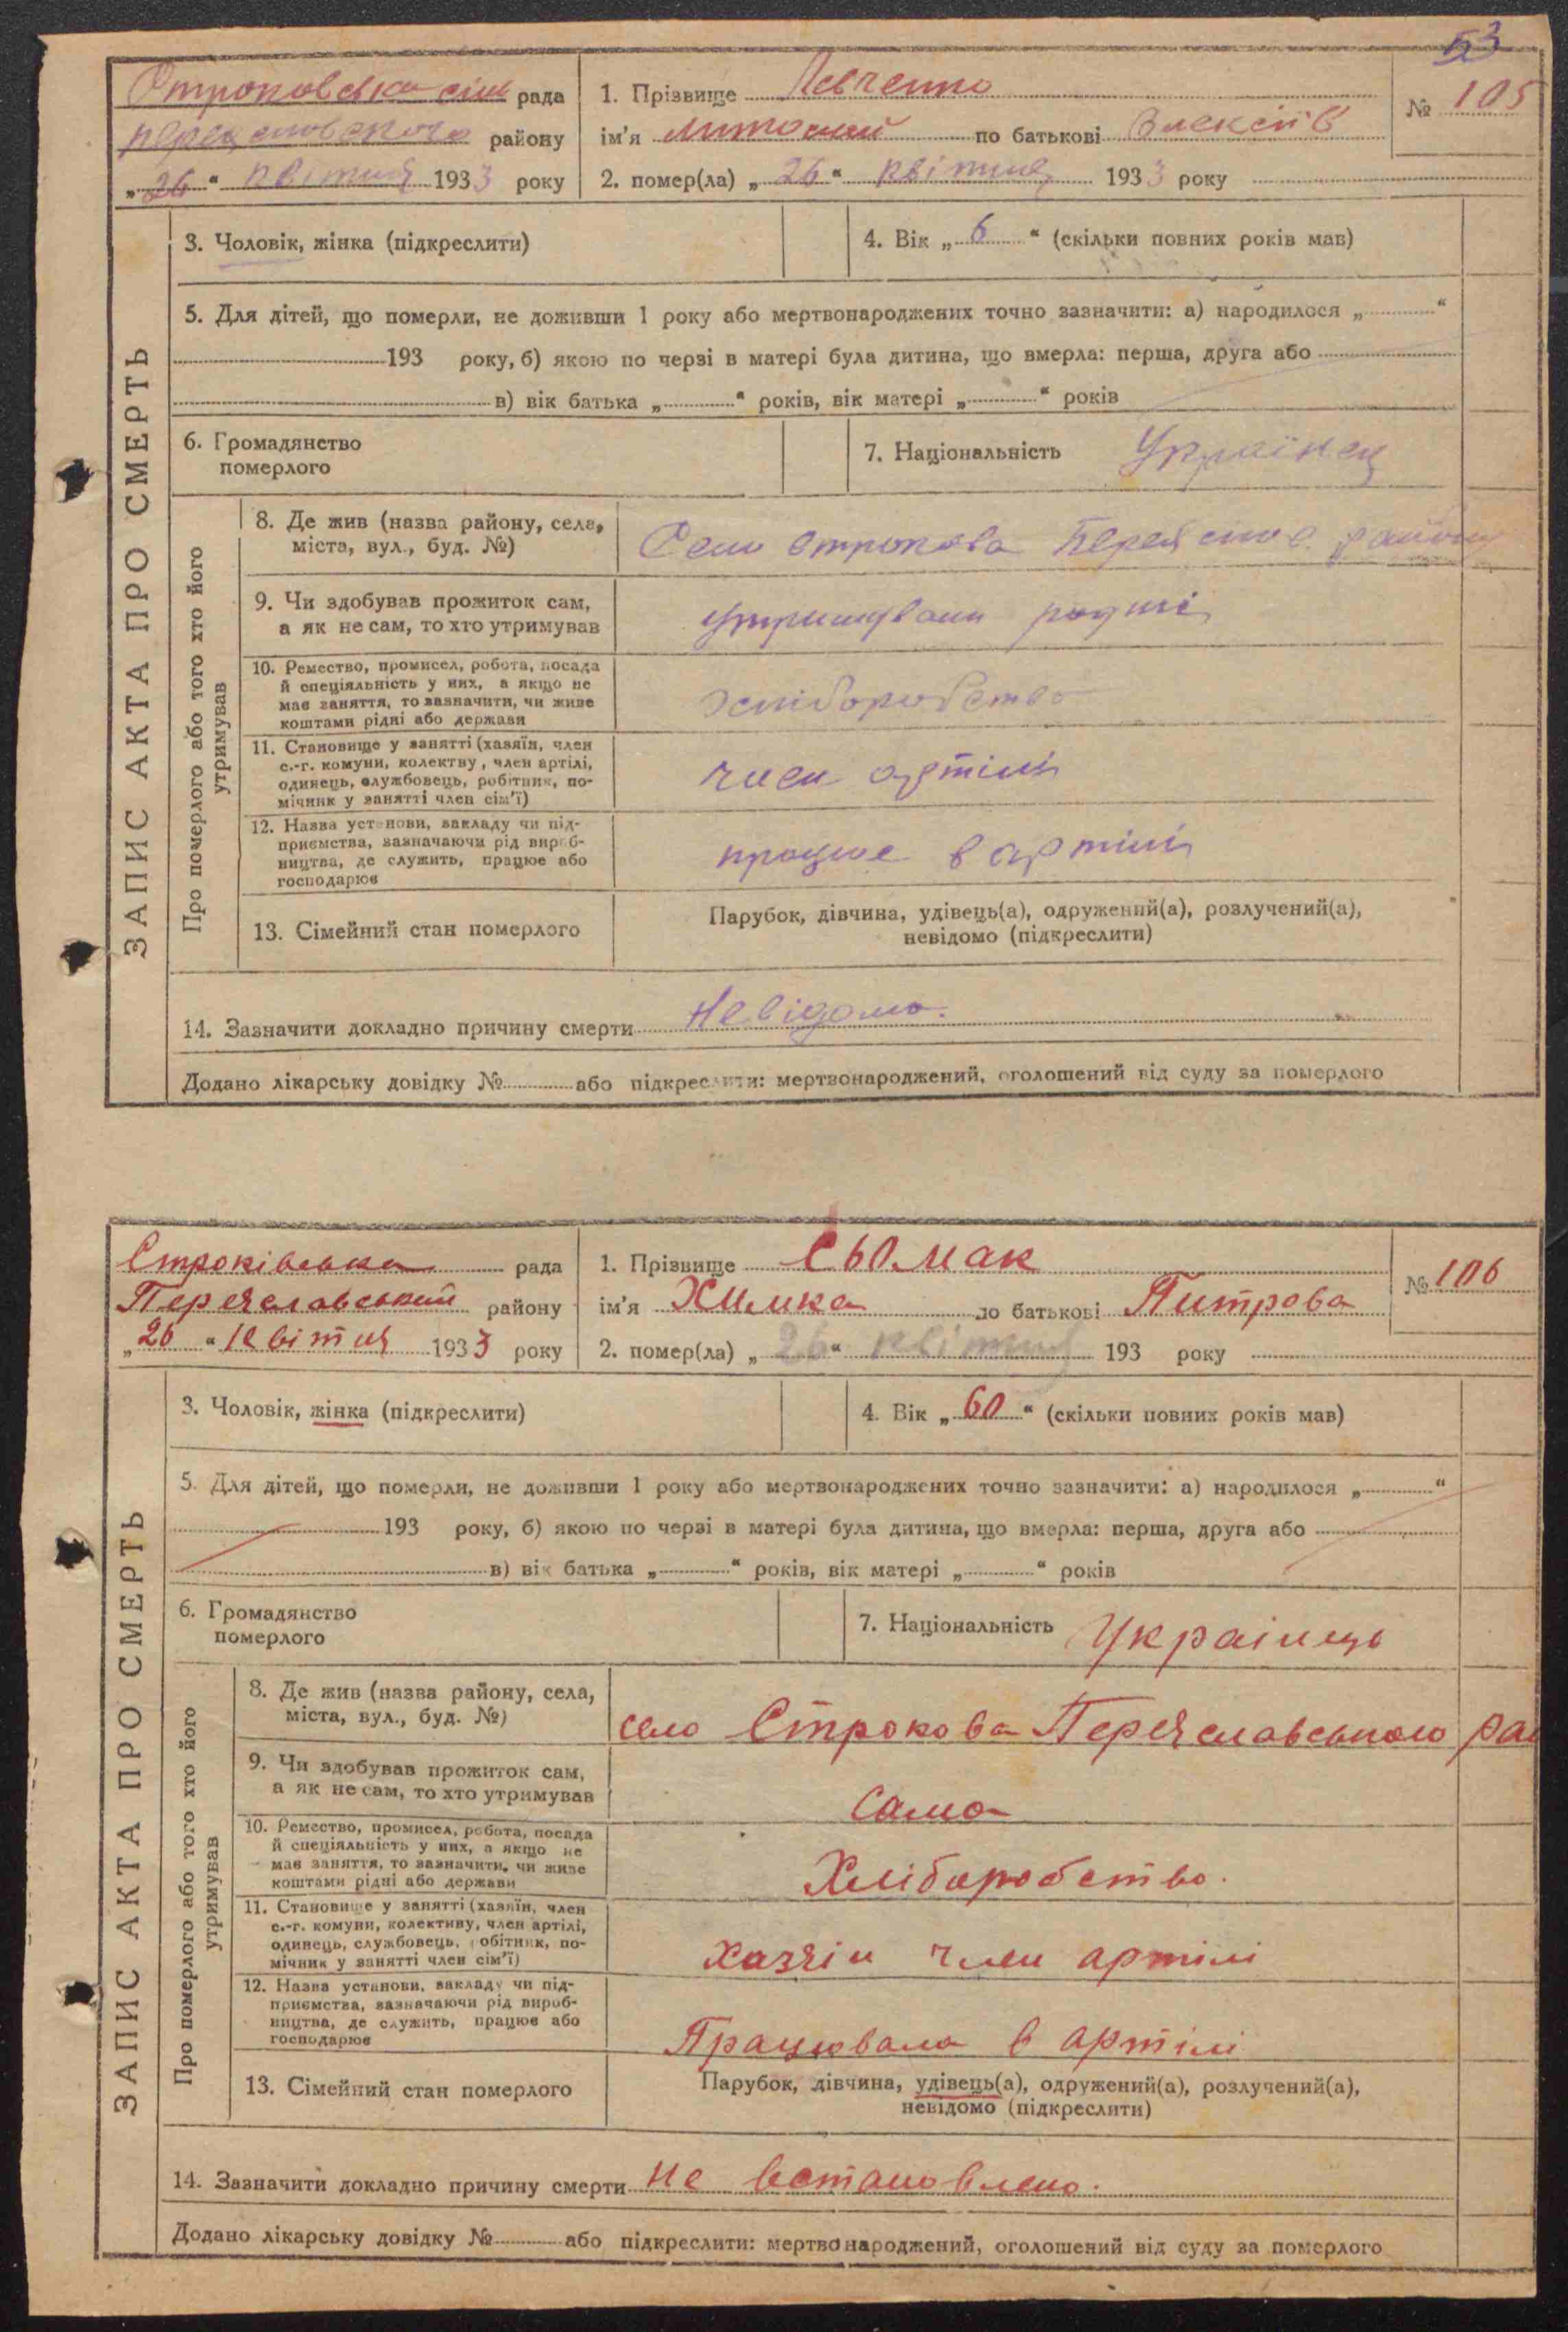 53
Строковська сіль рада
переясловского району
„26“ квітня 1933 року
1. Прізвище Левченко
№ 105
ім'я по батькові Олексіїв
2. помер(ла) „26“ квітня 1933 року
ЗАПИС АКТА ПРО СМЕРТЬ
3. Чоловік, жінка (підкреслити)
4. Вік „6“ (скільки повних років мав)
5. Для дітей, що померли, не доживши 1 року або мертвонароджених точно зазначити: а) народилося „ “
193 року, б) якою по черзі в матері була дитина, що вмерла: перша, друга або
в) вік батька „ “ років, вік матері „ “ років
6. Громадянство
померлого
7. Національність Українец
Про померлого або того хто його
утримував
8. Де жив (назва району, села,
міста, вул., буд. №)
Село Строкова Переяслов. району
9. Чи здобував прожиток сам,
а як не сам, то хто утримував
утримували родителі
10. Ремество, промисел, робота, посада
й спеціяльність у них, а якщо не
має заняття, то зазначити, чи живе
коштами рідні або держави
хліборобство
11. Становище у занятті (хазяїн, член
с.-г. комуни, колектву, член артілі,
одинець, службовець, робітник, по-
мічник у занятті член сім'ї)
член артілі
12. Назва установи, закладу чи під-
приємства, зазначаючи рід вироб-
ництва, де служить, працює або
господарює
працює в артілі
13. Сімейний стан померлого
Парубок, дівчина, удівець(а), одружений(а), розлучений(а),
невідомо (підкреслити)
14. Зазначити докладно причину смерти Невідомо.
Додано лікарську довідку № або підкреслити: мертвонароджений, оголошений від суду за померлого
Строківська рада
Переяславський району
„26“ квітня 1933 року
1. Прізвище Сьомак
№ 106
ім'я Химка по батькові Питрова
2. помер(ла) „26“ квітня 193 року
ЗАПИС АКТА ПРО СМЕРТЬ
3. Чоловік, жінка (підкреслити)
4. Вік „60“ (скільки повних років мав)
5. Для дітей, що померли, не доживши 1 року або мертвонароджених точно зазначити: а) народилося „ “
193 року, б) якою по черзі в матері була дитина, що вмерла: перша, друга або
в) вік батька „ “ років, вік матері „ “ років
6. Громадянство
померлого
7. Національність Українець
Про померлого або того хто його
утримував
8. Де жив (назва району, села,
міста, вул., буд. №)
село Строкова Переяславського рай
9. Чи здобував прожиток сам,
а як не сам, то хто утримував
Сама
10. Ремество, промисел, робота, посада
й спеціяльність у них, а якщо не
має заняття, то зазначити, чи живе
коштами рідні або держави
Хліборобство.
11. Становище у занятті (хазяїн, член
с.-г. комуни, колективу, член артілі,
одинець, службовець, робітник, по-
мічник у занятті член сім'ї)
Хазяїн член артілі
12. Назва установи, закладу чи під-
приємства, зазначаючи рід вироб-
ництва, де служить, працює або
господарює
Працювала в артілі
13. Сімейний стан померлого
Парубок, дівчина, удівець(а), одружений(а), розлучений(а),
невідомо (підкреслити)
14. Зазначити докладно причину смерти Не встановлено.
Додано лікарську довідку № або підкреслити: мертвонароджений, оголошений від суду за померлого